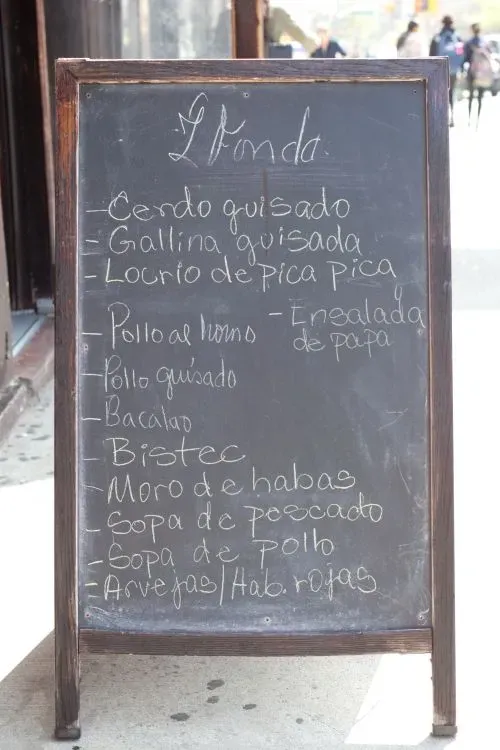 L Fonda.
- Cerdo guisado
- Gallina guisada
- Locrio de pica pica
- Pollo al horno
- Ensalada
de papa
- Pollo guisado
- Bacalao
- Bistec
- Moro de habas
- Sopa de pescado
- Sopa de pollo
- Arvejas/Hab. rojas